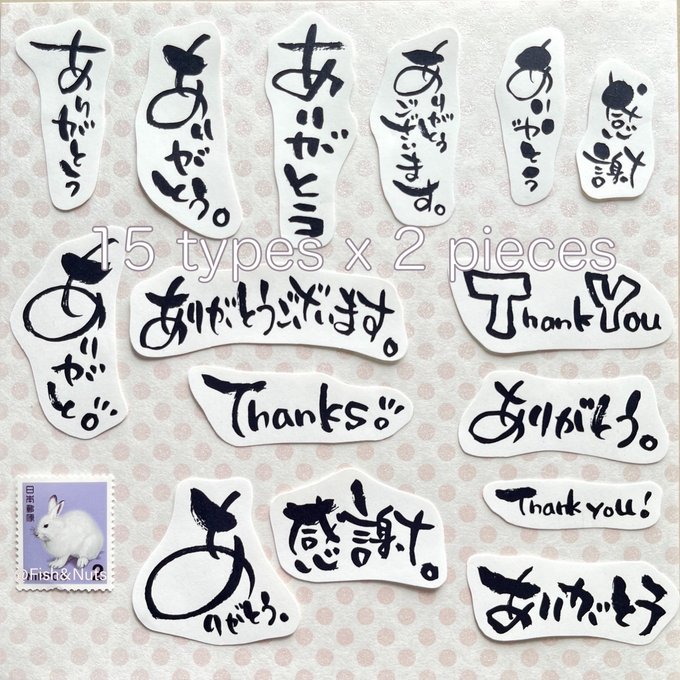 ありがとう
ありがとう。
ありがとう
ありがとう
ございます。
ありがとう
感謝
15 types x 2 pieces
ありがと。
ありがとうございます。
Thank You
Thanks
ありがとう。
日本郵便
2
@Fish&Nuts
ありがとう。
感謝。
Thank you!
ありがとう